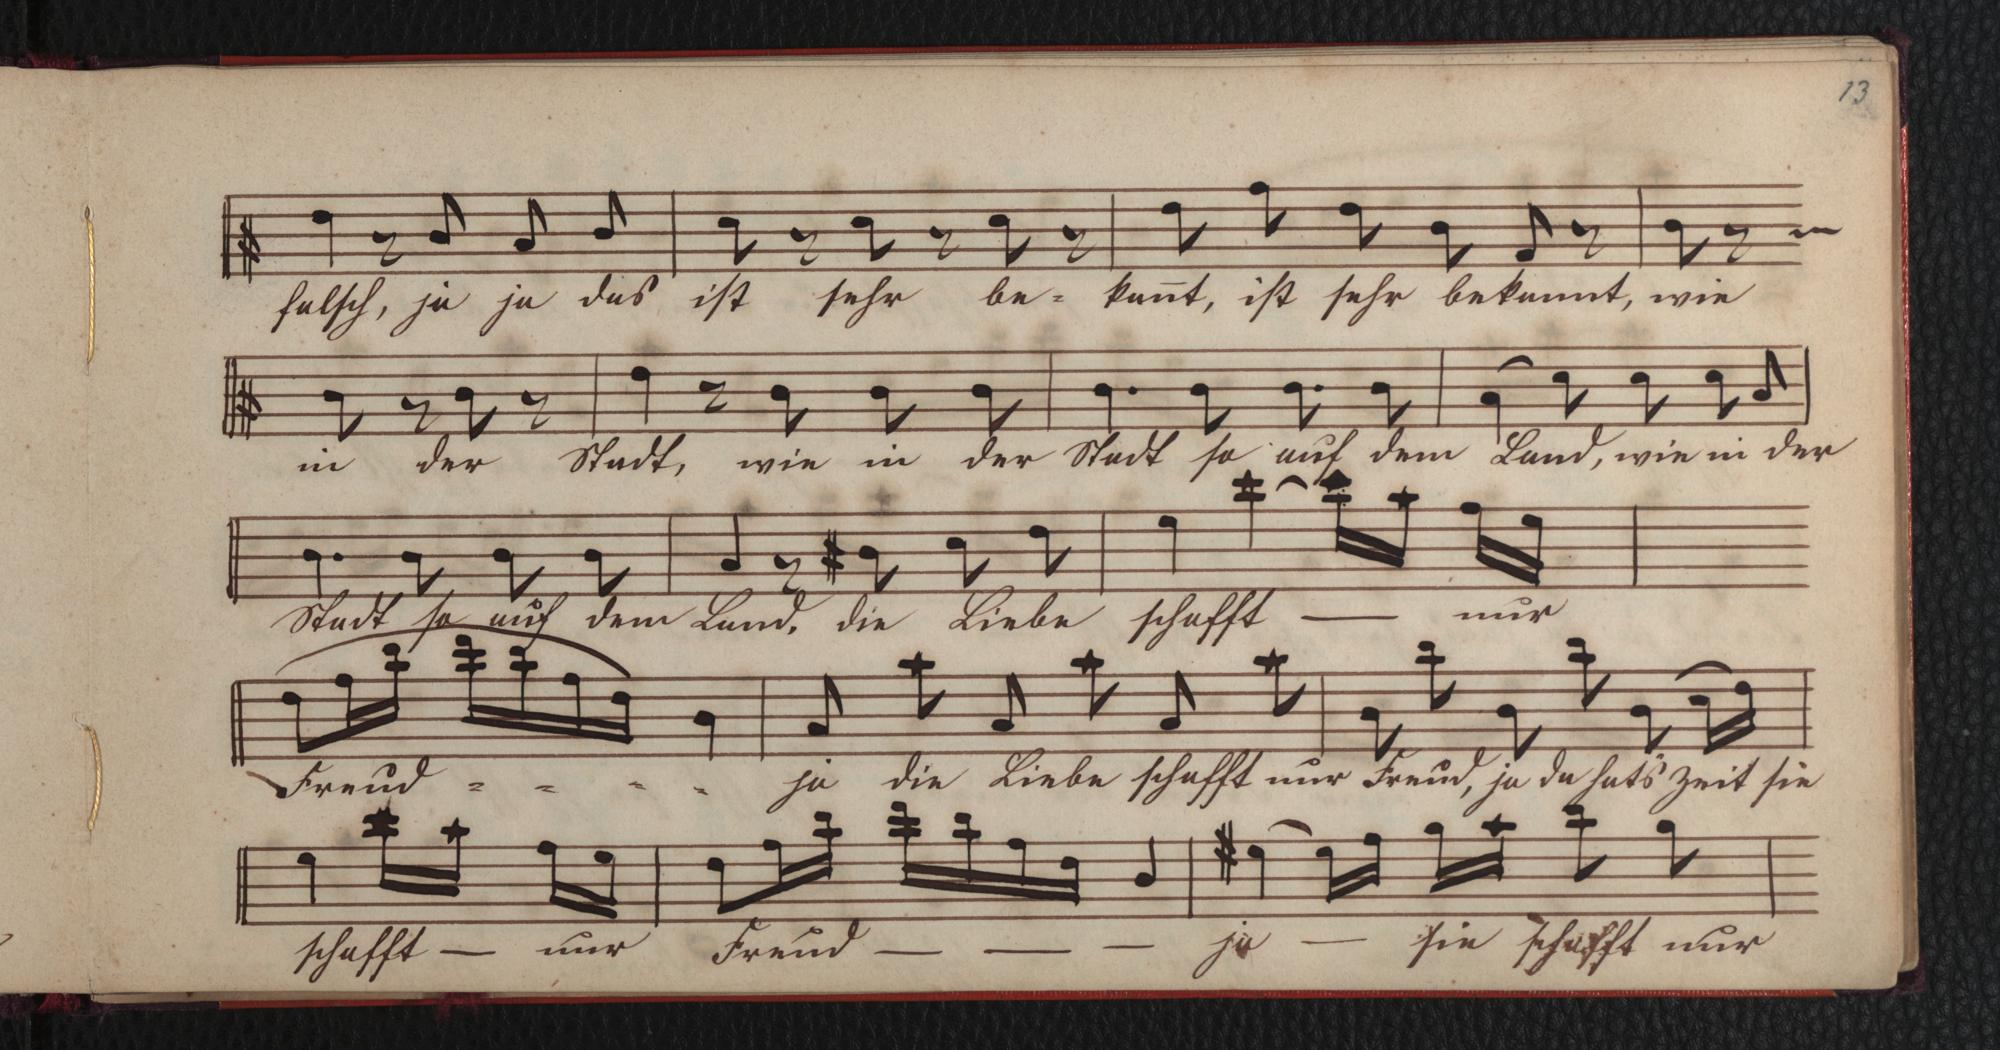 13
falsch, ja ja das ist sehr be- kan̅t, ist sehr bekannt, wie
in der Stadt, wie in der Stadt so auf dem Land, wie in der
Stadt so auf dem Land, die Liebe schafft — nur
Freud - - - - ja die Liebe schafft nur Freud, ja da hat's Zeit sie
schafft — nur Freud — — — ja — sie schafft nur